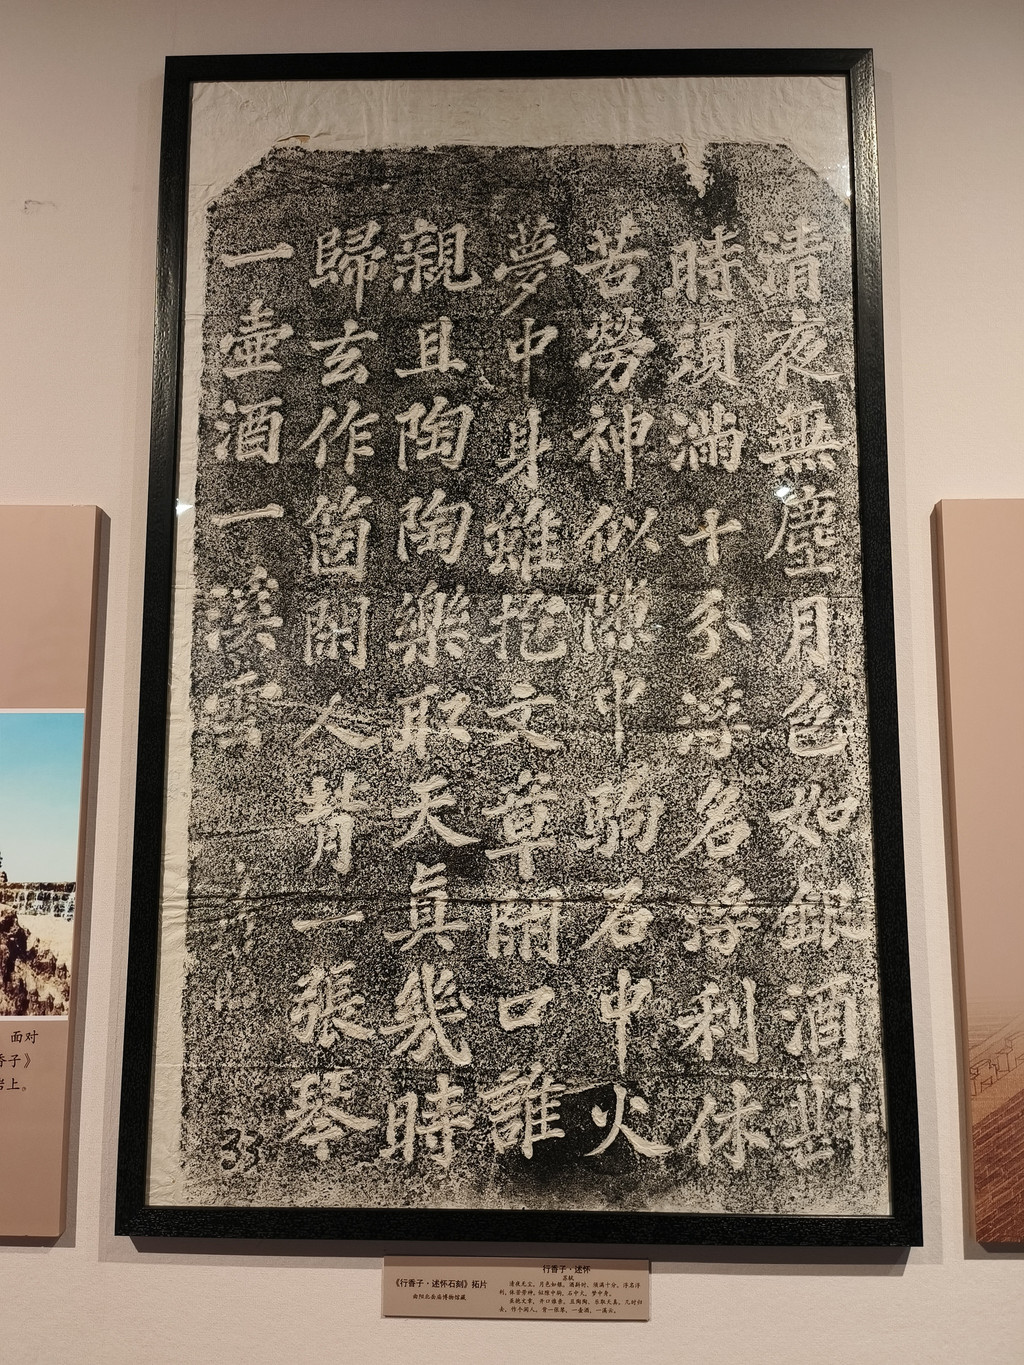 清夜無塵月色如銀酒斟
時須滿十分浮名浮利休
苦勞神似隙中駒石中火
夢中身雖抱文章開口誰
親且陶陶樂取天真幾時
歸去作箇閑人背一張琴
一壺酒一溪雲
33
面对
香子》
上。
《行香子·述怀石刻》拓片
曲阳北岳庙博物馆藏
行香子·述怀
苏轼
清夜无尘，月色如银。酒斟时、须满十分。浮名浮
利，休苦劳神。似隙中驹，石中火，梦中身。
虽抱文章，开口谁亲。且陶陶、乐取天真。几时归
去，作个闲人。背一张琴，一壶酒，一溪云。